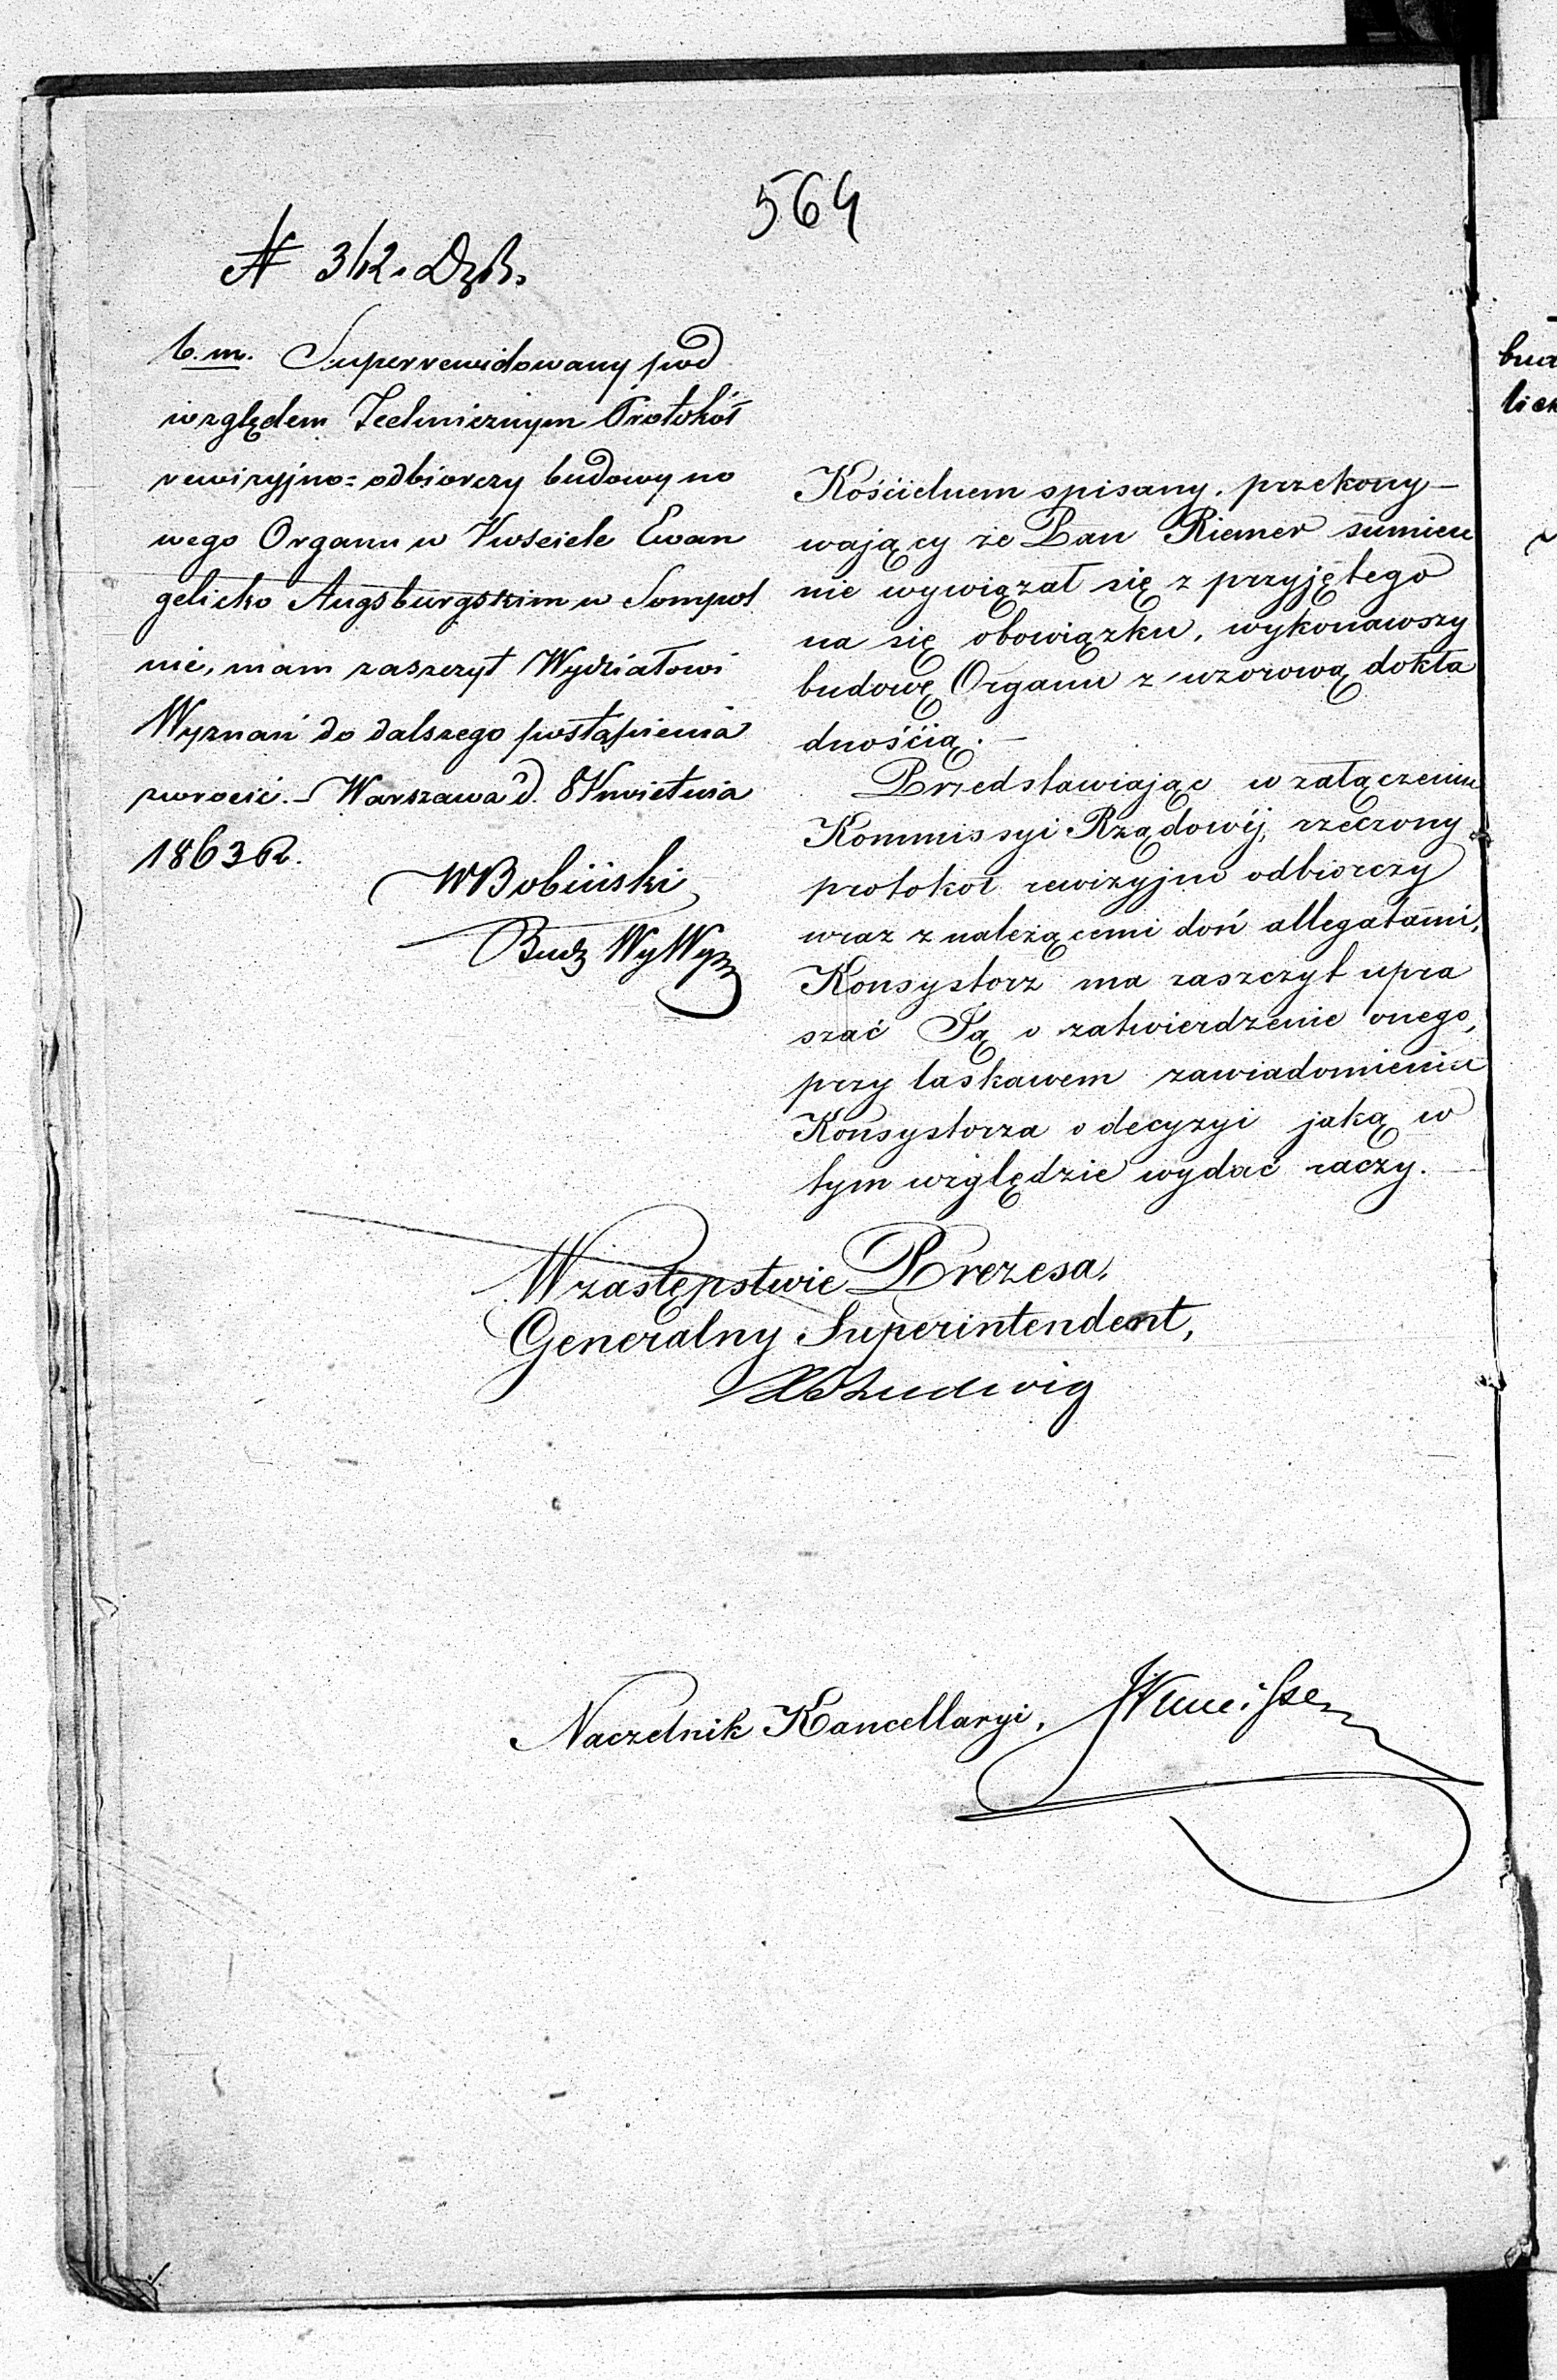 564
N 312. DzB.
b.m. Superrewidowany pod
względem Technicznym Protokół
rewizyjno=odbiorczy budowy no
wego Organu w Kościele Ewan
gelicko Augsburgskim w Sompol
nie, mam zaszczyt Wydziałowi
Wyznań do dalszego postąpienia
zwrócić. – Warszawa d. 8 Kwietnia
1863 R.
WBobiński
Bud: WyWyz
Kościelnem spisany, przekony-
wający że Pan Riemer sumien
nie wywiązał się z przyjętego
na się obowiązku, wykonawszy
budowę Organu z wzorową dokła
dnością. –
Przedstawiając w załączeniu
Kommissyi Rządowéj, rzeczony
protokół rewizyjno odbiorczy
wraz z należącemi doń allegatami,
Konsystorz ma zaszczyt upra
szać Ją o zatwierdzenie onego,
przy łaskawem zawiadomieniu
Konsystorza o decyzyi jaką w
tym względzie wydać raczy.
W zastępstwie Prezesa,
Generalny Superintendent,
Ludwig
Naczelnik Kancellaryi,